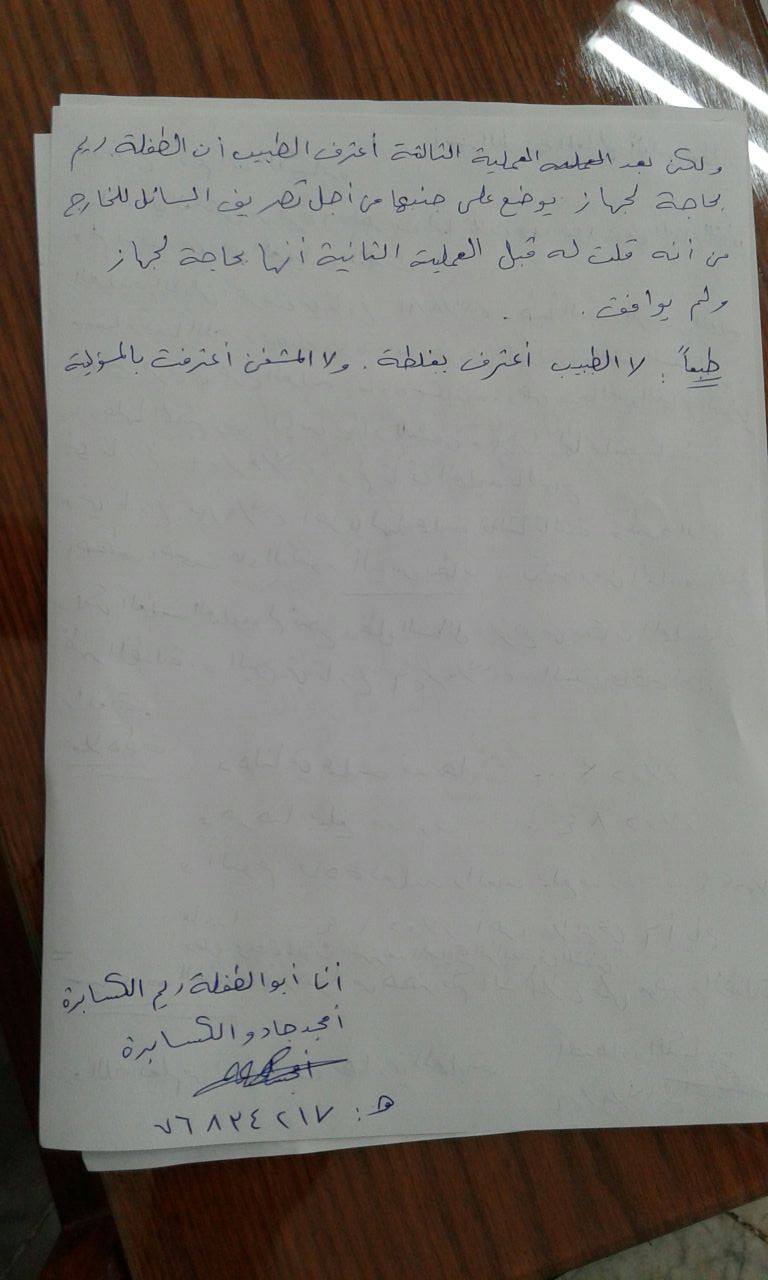 ولكن بعد العملية العملية الثالثة أعترف الطبيب أن الطفلة ريم
بحاجة لجهاز يوضع على جنبها من أجل تصريف السائل للخارج
من أنه قلت له قبل العملية الثانية أنها بحاجة لجهاز
ولم يوافق.
طبعاً: لا الطبيب أعترف بغلطة. ولا المشفى أعترفت بالمسؤلية
أنا أبو الطفلة ريم الكسابرة
أمجد جادو الكسابرة
هـ: ٧٦٨٣٤٢١٧